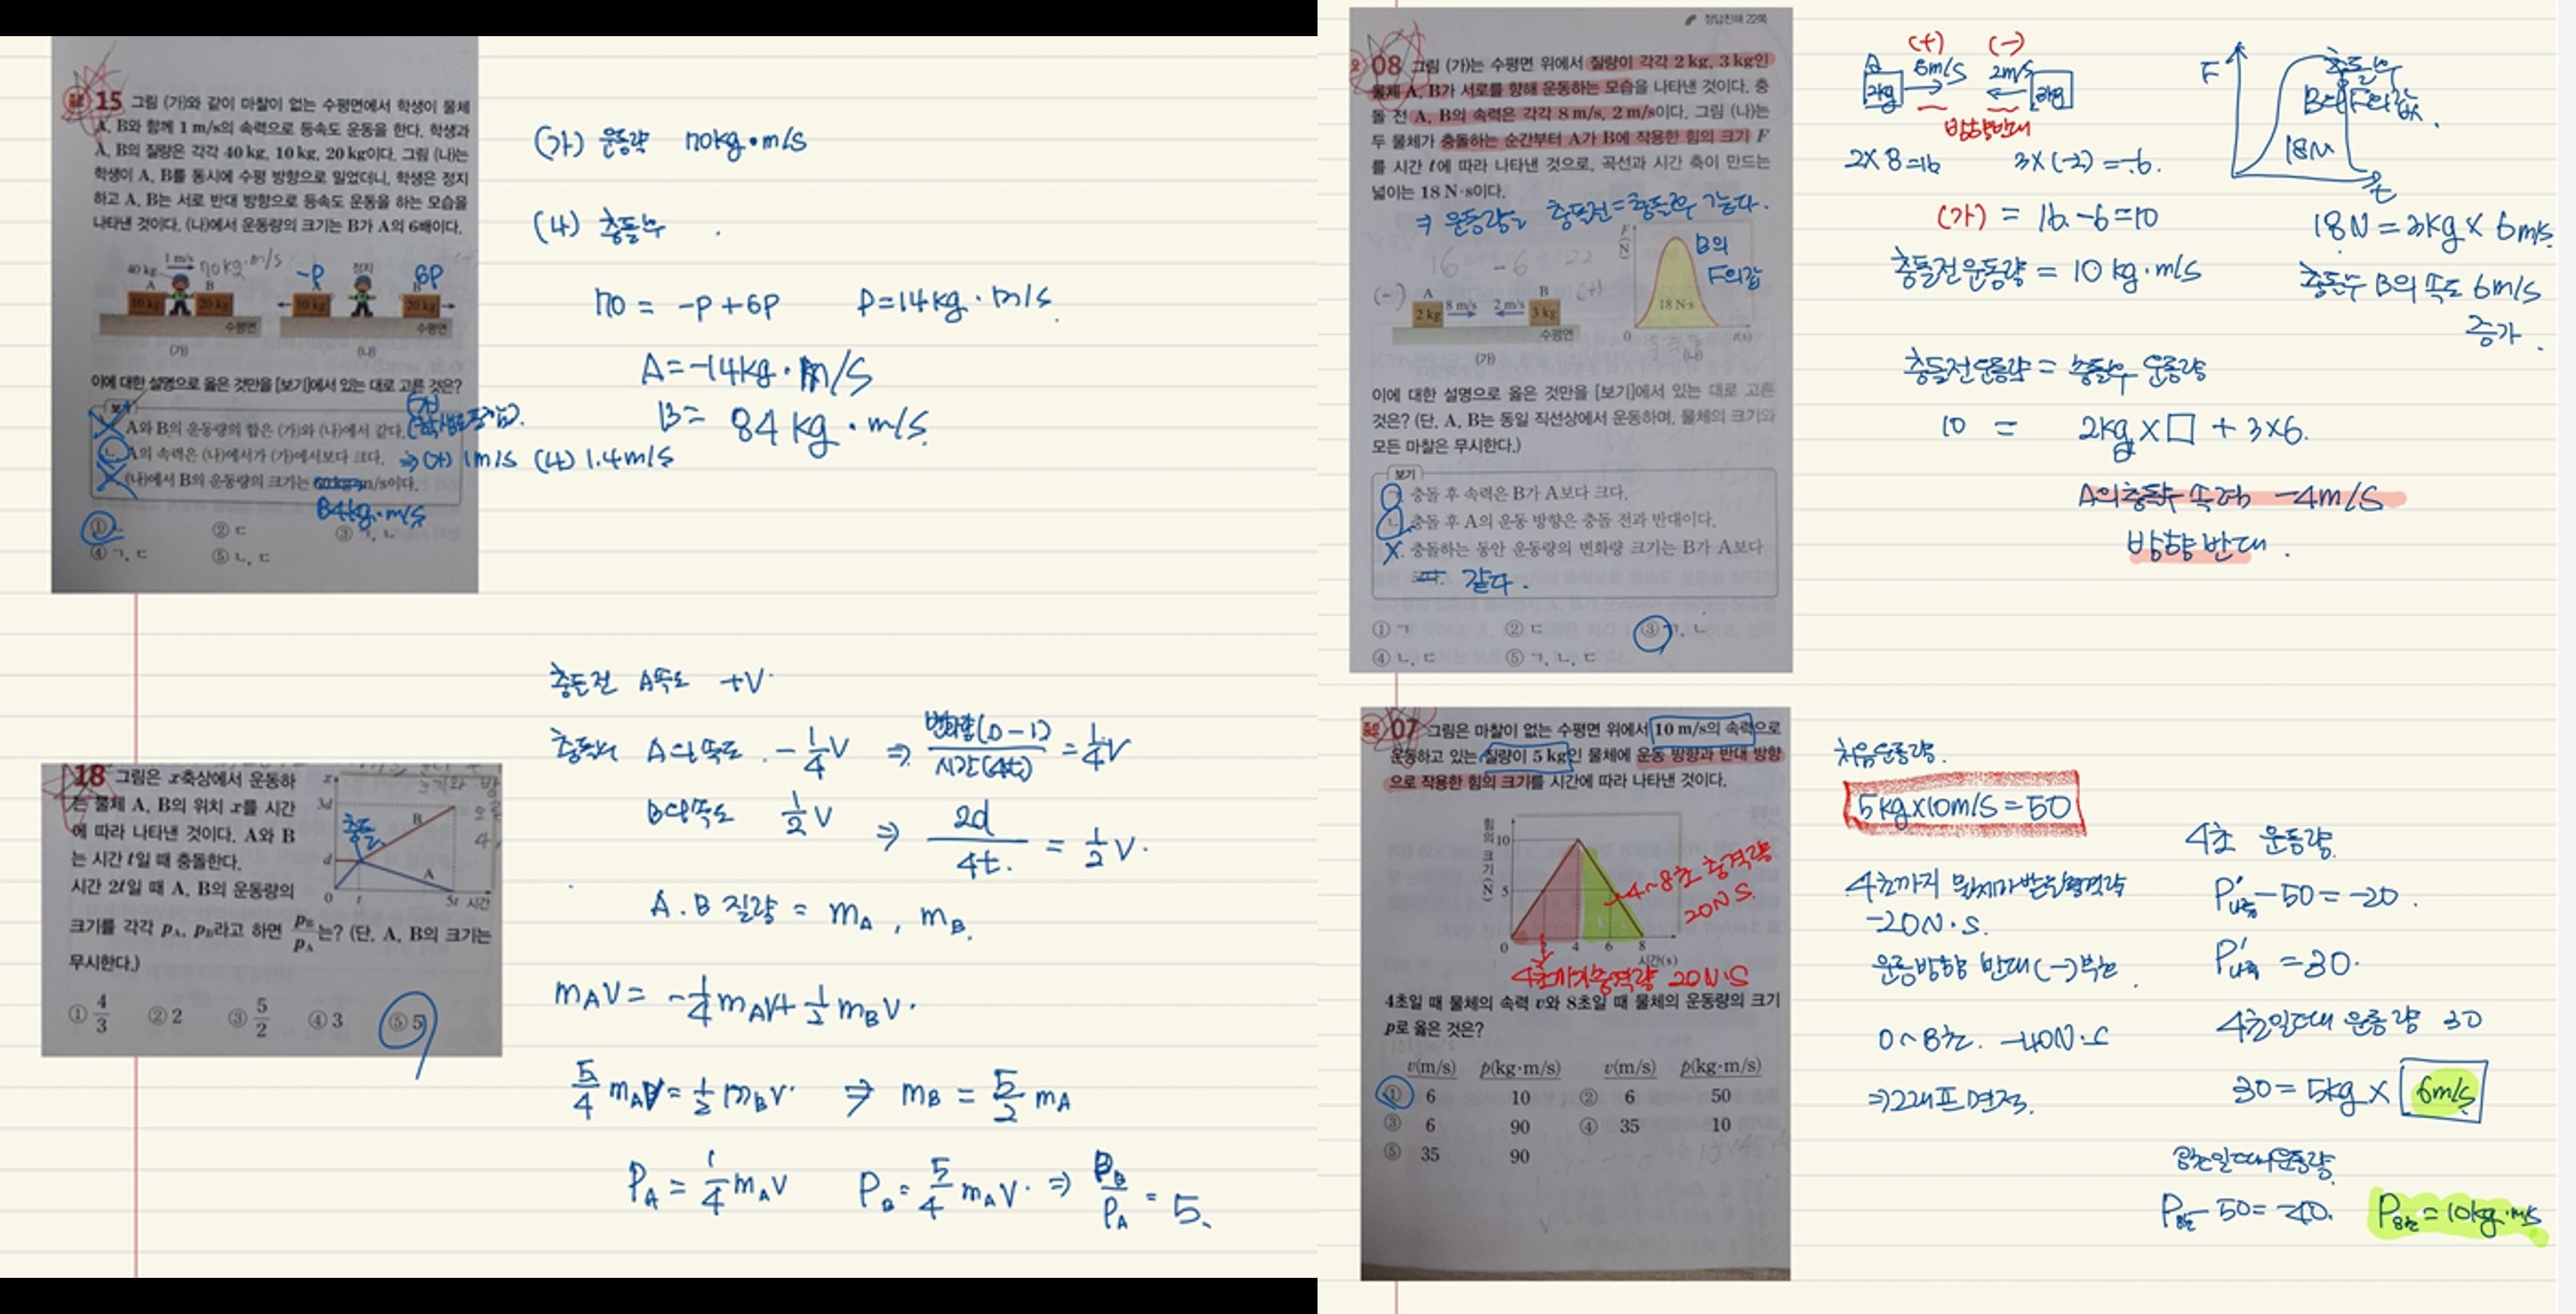 15 그림 (가)와 같이 마찰이 없는 수평면에서 학생이 물체
A, B와 함께 1 m/s의 속력으로 등속도 운동을 한다. 학생과
A, B의 질량은 각각 40 kg, 10 kg, 20 kg이다. 그림 (나)는
학생이 A, B를 동시에 수평 방향으로 밀었더니, 학생은 정지
하고 A, B는 서로 반대 방향으로 등속도 운동을 하는 모습을
나타낸 것이다. (나)에서 운동량의 크기는 B가 A의 6배이다.
40 kg 1 m/s 70kg·m/s -P 정지 6P
A B B
10 kg 20 kg 10 kg 20 kg
수평면 수평면
(가) (나)
이에 대한 설명으로 옳은 것만을 [보기]에서 있는 대로 고른 것은?
보기
A와 B의 운동량의 합은 (가)와 (나)에서 같다.
ㄴ. A의 속력은 (나)에서가 (가)에서보다 크다. ⇒ (가) 1m/s (나) 1.4m/s
(나)에서 B의 운동량의 크기는 m/s이다.
84kg·m/s
① ㄴ ② ㄷ ③ ㄱ, ㄴ
④ ㄱ, ㄷ ⑤ ㄴ, ㄷ
(가) 운동량 70kg·m/s
(나) 충돌후
70 = -P+6P P=14kg·m/s
A=-14kg·m/s
B= 84kg·m/s
18 그림은 x축상에서 운동하
는 물체 A, B의 위치 x를 시간
에 따라 나타낸 것이다. A와 B
는 시간 t일 때 충돌한다.
시간 2t일 때 A, B의 운동량의
크기를 각각 pA, pB라고 하면 pB/pA는? (단, A, B의 크기는
무시한다.)
x
3d
충돌 B
d
A
0 t 5t 시간
① 4/3 ② 2 ③ 5/2 ④ 3 ⑤ 5
충돌전 A속도 +V
충돌후 A의 속도 -1/4V ⇒ 변화량(0-1)/시간(4t) = 1/4V
B의 속도 1/2V ⇒ 2d/4t = 1/2V.
A.B 질량 = mA, mB.
mAV = -1/4mAV+1/2mBV.
5/4mAV=1/2mBV ⇒ mB = 5/2mA
PA = 1/4mAV PB = 5/4mAV ⇒ PB/PA = 5.
정답친해 22쪽
08 그림 (가)는 수평면 위에서 질량이 각각 2 kg, 3 kg인
물체 A, B가 서로를 향해 운동하는 모습을 나타낸 것이다. 충
돌 전 A, B의 속력은 각각 8 m/s, 2 m/s이다. 그림 (나)는
두 물체가 충돌하는 순간부터 A가 B에 작용한 힘의 크기 F
를 시간 t에 따라 나타낸 것으로, 곡선과 시간 축이 만드는
넓이는 18 N·s이다.
⇒ 운동량은 충돌전=충돌후 같다.
16 -6
(-) A 8 m/s 2 m/s B (+)
2 kg 3 kg
수평면
(가)
F(N)
B의
F의값
18 N·s
0 t(s)
(나)
이에 대한 설명으로 옳은 것만을 [보기]에서 있는 대로 고른
것은? (단, A, B는 동일 직선상에서 운동하며, 물체의 크기와
모든 마찰은 무시한다.)
보기
충돌 후 속력은 B가 A보다 크다.
ㄴ. 충돌 후 A의 운동 방향은 충돌 전과 반대이다.
충돌하는 동안 운동량의 변화량 크기는 B가 A보다
같다.
① ㄱ ② ㄷ ③ ㄱ, ㄴ
④ ㄴ, ㄷ ⑤ ㄱ, ㄴ, ㄷ
(+) (-)
A 8m/s 2m/s
2kg 3kg
방향반대
2×8=16 3×(-2)=-6.
(가) = 16-6=10
충돌전운동량 = 10kg·m/s
충돌전운동량 = 충돌후 운동량
10 = 2kg×□ + 3×6.
A의충돌후 속력 -4m/s
방향반대.
F
충돌후
B의 F의값
18N
t
18N=3kg×6m/s
충돌후 B의 속도 6m/s
증가.
07 그림은 마찰이 없는 수평면 위에서 10 m/s의 속력으로
운동하고 있는 질량이 5 kg인 물체에 운동 방향과 반대 방향
으로 작용한 힘의 크기를 시간에 따라 나타낸 것이다.
힘의 크기(N)
10
5
0 2 4 6 8
시간(s)
4~8초 충격량
20N·S.
4초까지충격량 20N·S
4초일 때 물체의 속력 v와 8초일 때 물체의 운동량의 크기
p로 옳은 것은?
v(m/s) p(kg·m/s) v(m/s) p(kg·m/s)
① 6 10 ② 6 50
③ 6 90 ④ 35 10
⑤ 35 90
처음운동량.
5kg×10m/s=50
4초까지 물체가받은충격량
-20N·S.
운동방향 반대(-)부호.
0~8초. -40N·S
⇒그래프 면적.
4초 운동량.
P'나중-50=-20.
P'나중=30.
4초일때 운동량 30
30=5kg× 6m/s
8초일때운동량.
P8초-50=-40. P8초=10kg·m/s